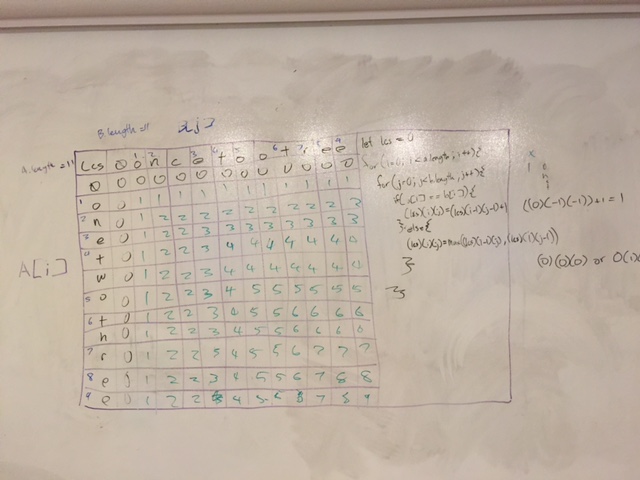 B.length=11
A.length=11
A[i]
LCS 0 o n c e t o o t r e e
0 0 0 0 0 0 0 0 0 0 0 0 0
o 0 1 1 1 1 1 1 1 1 1 1 1
n 0 1 2 2 2 2 2 2 2 2 2
e 0 1 2 2 3 3 3 3 3 3 3 3
t 0 1 2 2 3 4 4 4 4 4 4 0
w 0 1 2 2 3 4 4 4 4 4 4
o 0 1 2 2 3 4 5 5 5 5 5 5
t 0 1 2 2 3 4 5 5 6 6 6 6
h 0 1 2 2 3 4 5 5 6 6 6
r 0 1 2 2 4 5 6 7 7 7
e 0 1 2 2 3 4 5 5 6 7 8 8
e 0 1 2 2 4 5 7 8 9
let lcs = 0
for(i=0; i<a.length, i++){
for(j=0; j<b.length, j++){
if(a[i] == b[j]){
(lcs)(i)(j)=(lcs)(i-1)(j-1)+1
} else{
(lcs)(i)(j)=max((lcs)(i-1)(j), (lcs)(i)(j-1))
}
((0)(-1)(-1))+1 = 1
(0)(0)(0) or 0(1)(